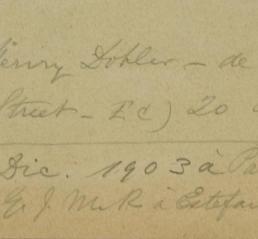 Henry Dobler - de
Street - E C) 20
Dic. 1903 à Pa
G. J. McR à Estefan